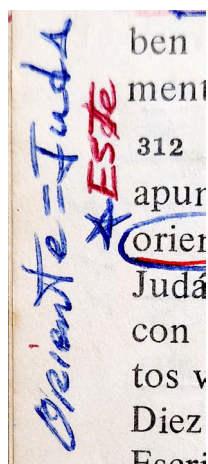 Oriente = Juda
* Este
ben
ment
312
apun
orien
Judá
con
tos v
Diez
Escri